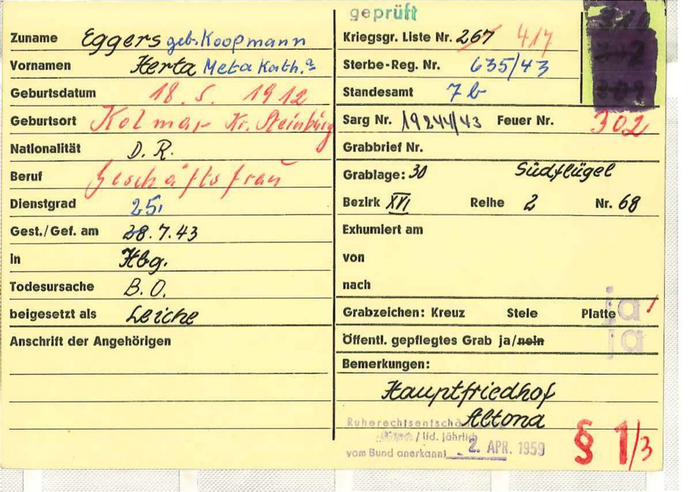 geprüft
Zuname Eggers geb. Koopmann
Vornamen Herta Meta Kath.a
Geburtsdatum 18. 5. 1912
Geburtsort Kolmar Kr. Steinburg
Nationalität D. R.
Beruf Geschäftsfrau
Dienstgrad
Gest./Gef. am 28.7.43
in Hbg.
Todesursache B. O.
beigesetzt als Leiche
Anschrift der Angehörigen
Kriegsgr. Liste Nr. 267 417
Sterbe-Reg. Nr. 635/43
Standesamt 7b
Sarg Nr. 19244/43 Feuer Nr. 302
Grabbrief Nr.
Grablage: 30 Südflügel
Bezirk XVI Reihe 2 Nr. 68
Exhumiert am
von
nach
Grabzeichen: Kreuz Stele Platte ja
Öffentl. gepflegtes Grab ja/nein ja
Bemerkungen:
Hauptfriedhof
Altona
Ruherechtsentschä
/ lfd. jährlich
vom Bund anerkannt 2. APR. 1959
§ 1/3